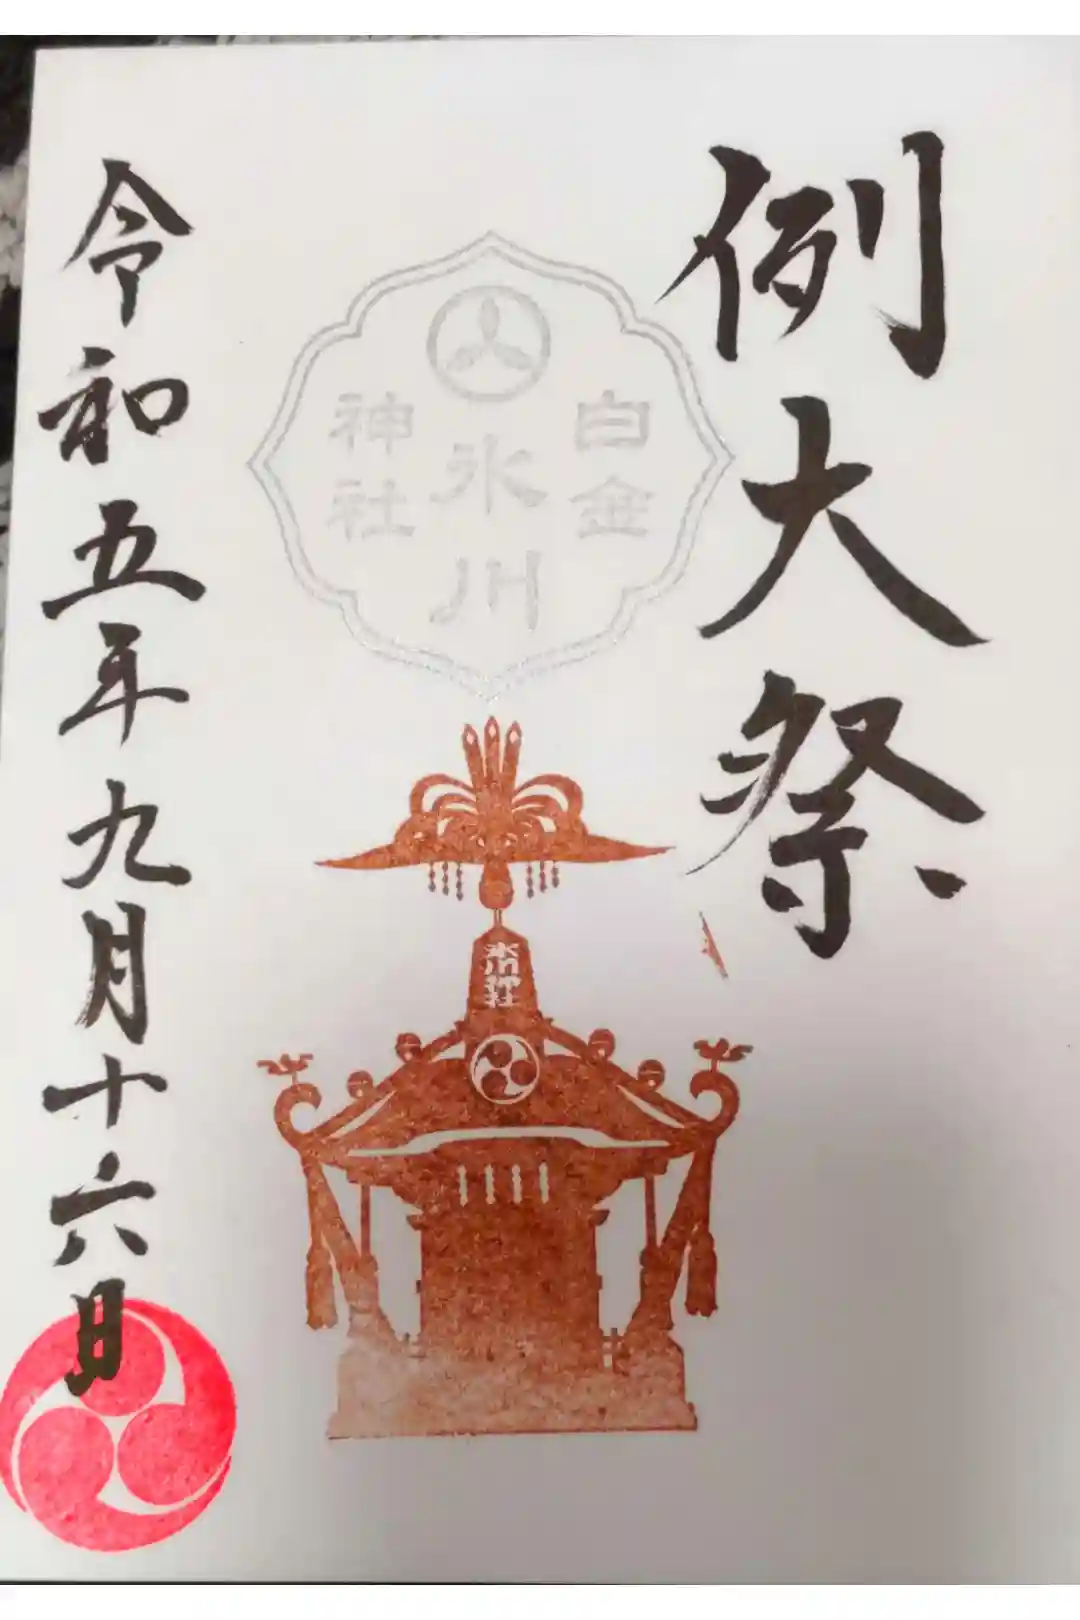 例大祭
白金
氷川
神社
氷川社
令和五年九月十六日